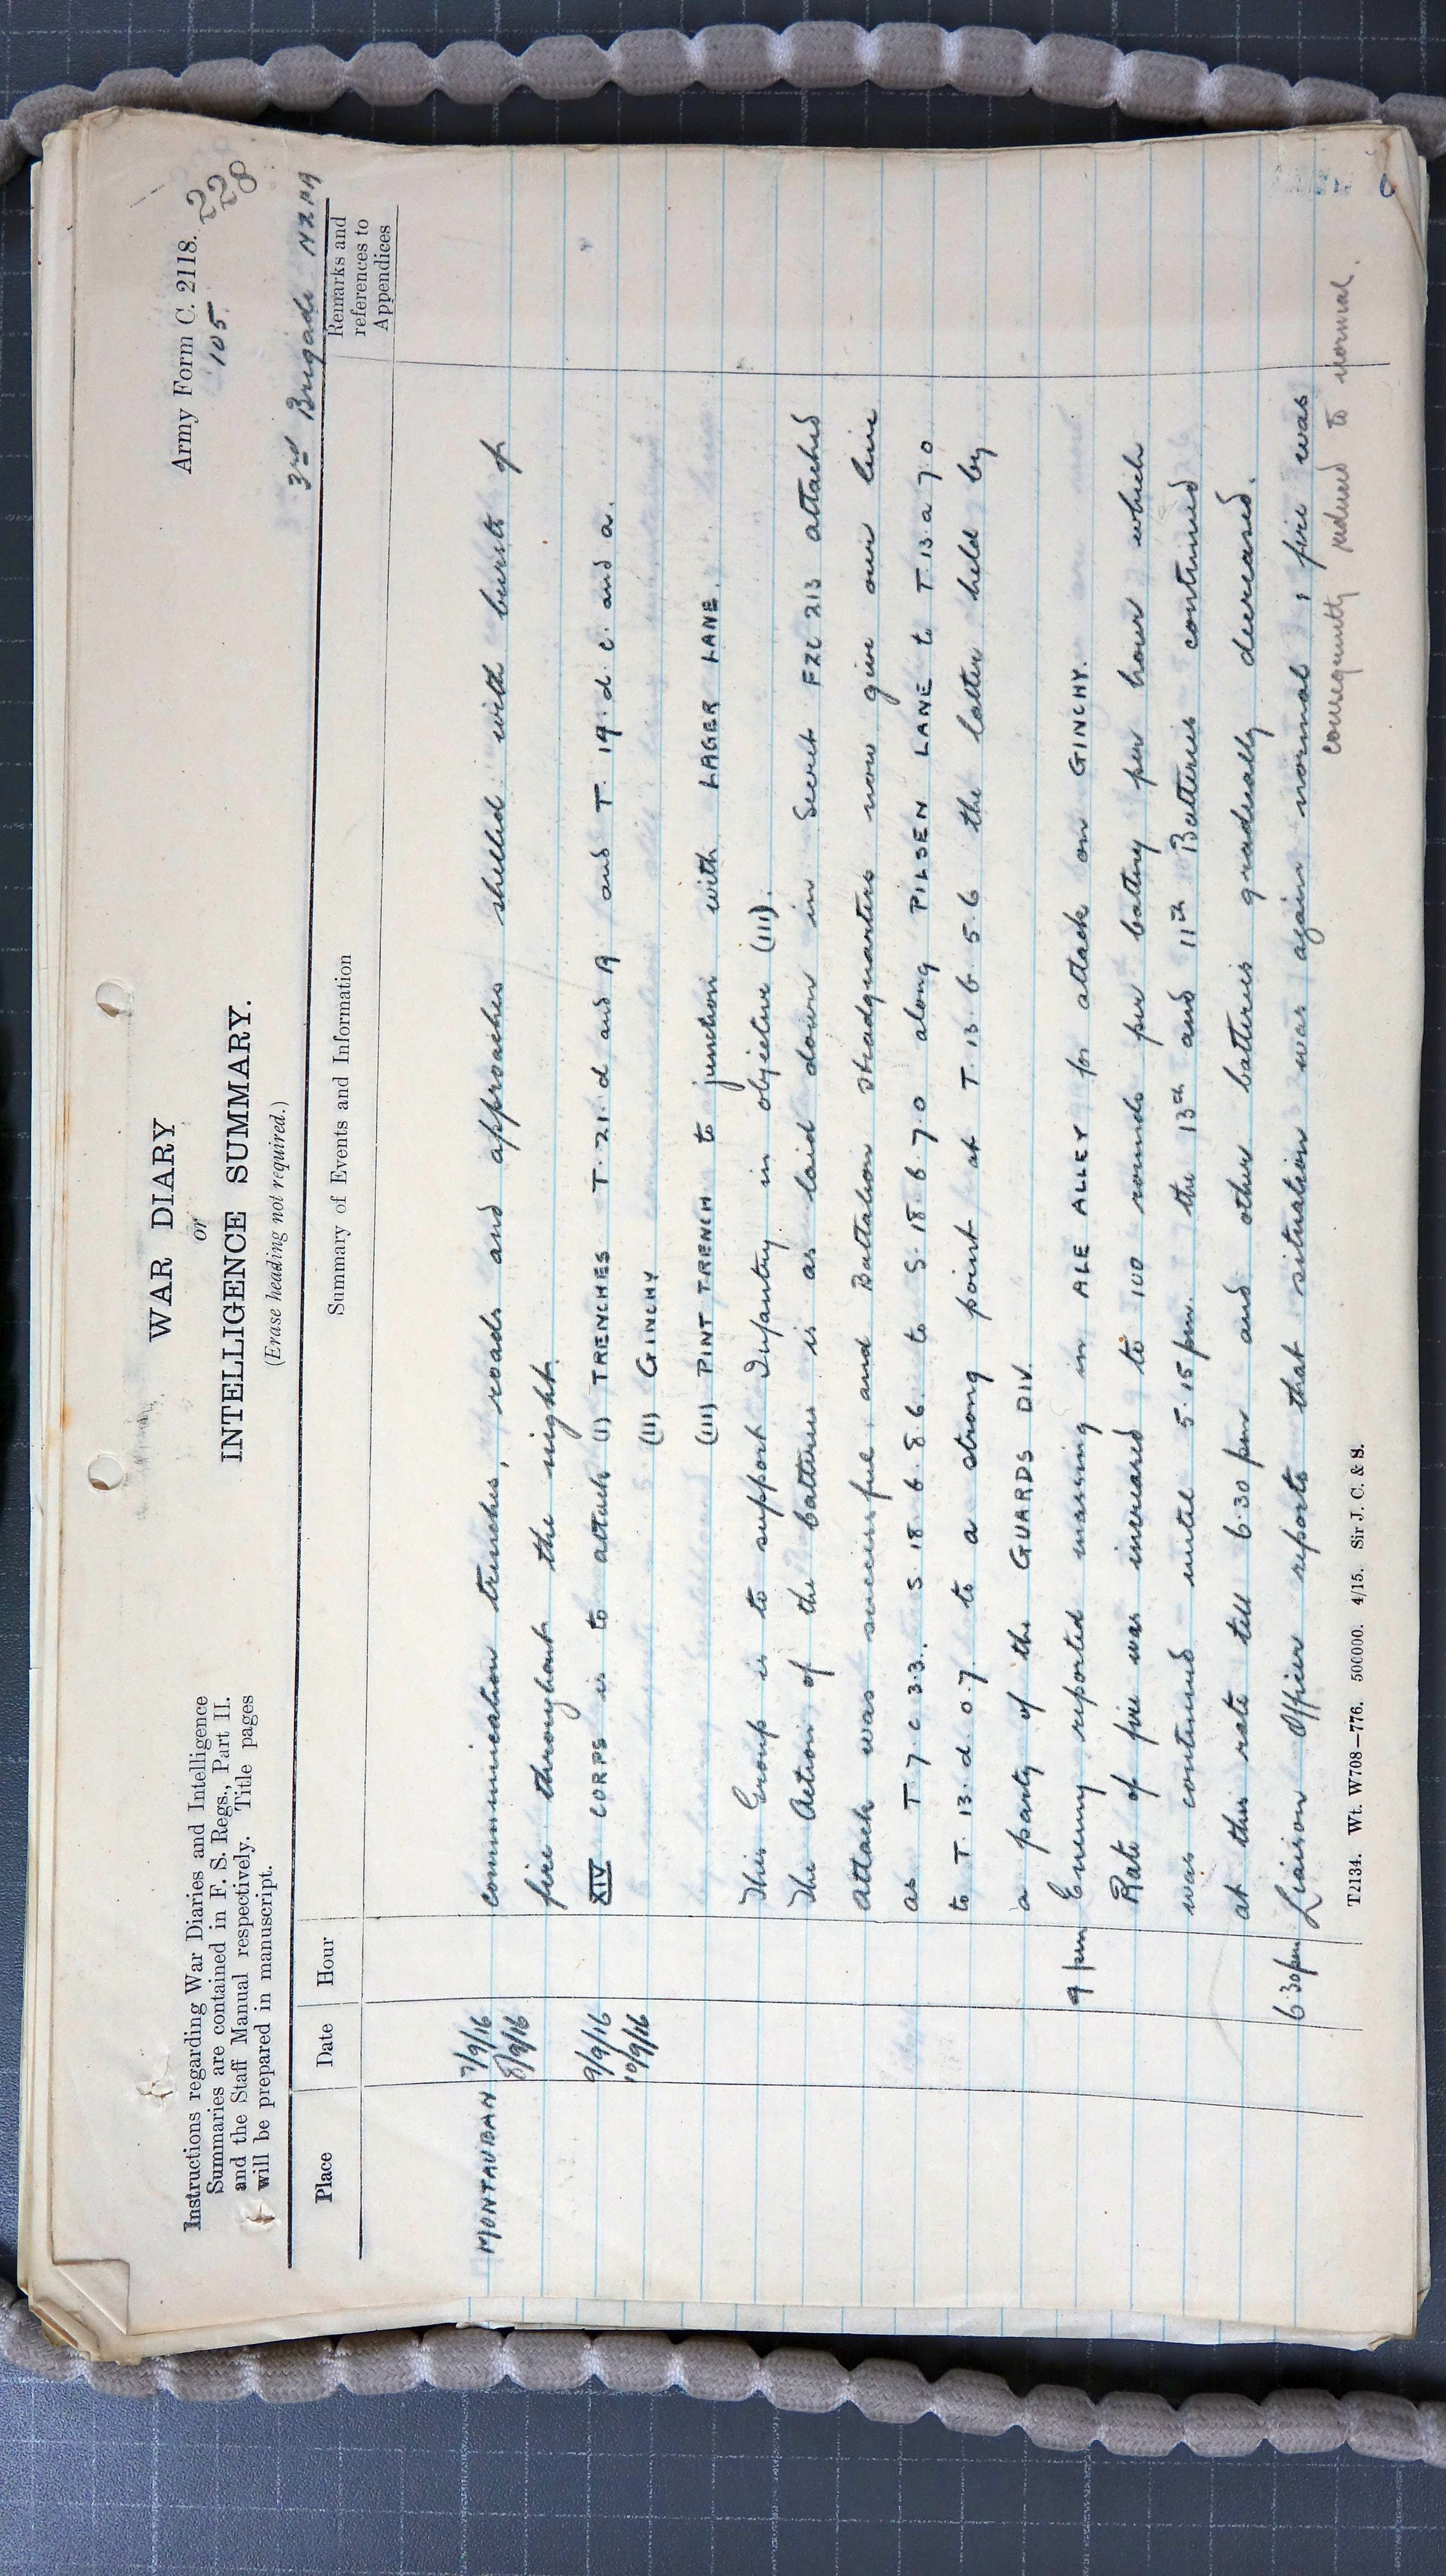 Army Form C. 2118.
228
105.
WAR DIARY
or
INTELLIGENCE SUMMARY.
(Erase heading not required.)
Instructions regarding War Diaries and Intelligence
Summaries are contained in F. S. Regs., Part II.
and the Staff Manual respectively. Title pages
will be prepared in manuscript.
3rd Brigade NZFA
Place Date Hour Summary of Events and Information Remarks and references to Appendices
MONTAUBAN 7/9/16 communication trenches, roads and approaches shelled with bursts of
8/9/16 fire throughout the night.
9/9/16 XIV CORPS is to attack (I) TRENCHES T. 21. d and A and T. 19. d. c. and a.
10/9/16 (II) GINCHY
(III) PINT TRENCH to junction with LAGER LANE.
This Group is to support Infantry in objective (III).
The Action of the batteries is as laid down in Secret FZC 213 attached
Attack was successful, and Battalion Headquarters now give our line
as T 7 c 3.3. S 18. b. 8.6. to S. 18 b 7.0 along PILSEN LANE to T. 13. a 7.0
to T. 13. d. 0.7. to a strong point at T. 13. b. 5.6 the latter held by
a party of the GUARDS DIV.
9 pm Enemy reported massing in ALE ALLEY for attack on GINCHY.
Rate of fire was increased to 100 rounds per battery per hour which
was continued until 5.15 pm. the 13th and 11th Batteries continued
at this rate till 6.30 pm and other batteries gradually decreased.
6.30pm Liaison Officer reports that situation was again normal, fire was
consequently reduced to normal.
T2134. Wt. W708—776. 500000. 4/15. Sir J. C. & S.